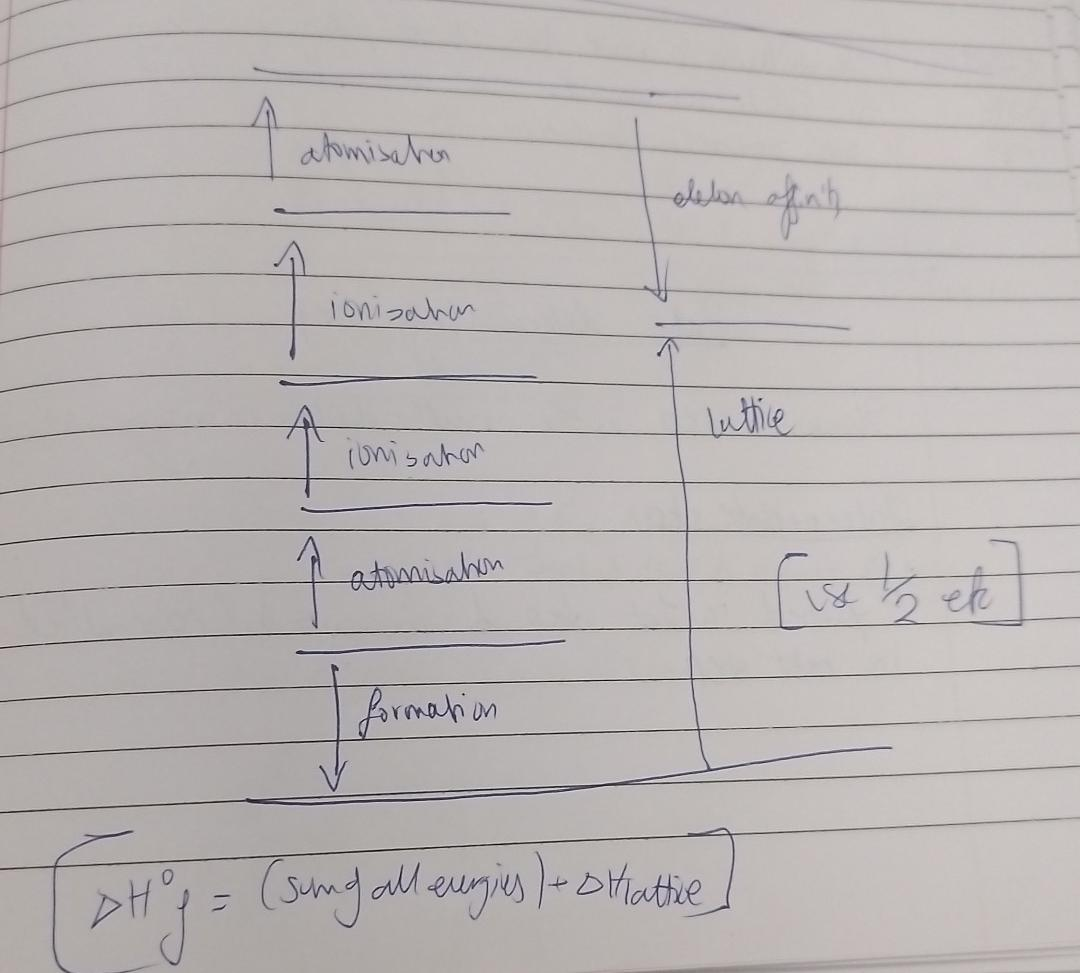 atomisation
electron affinity
ionisation
lattice
ionisation
atomisation
[use 1/2 etc]
formation
[ΔH°f = (sum of all energies) + ΔHlattice]